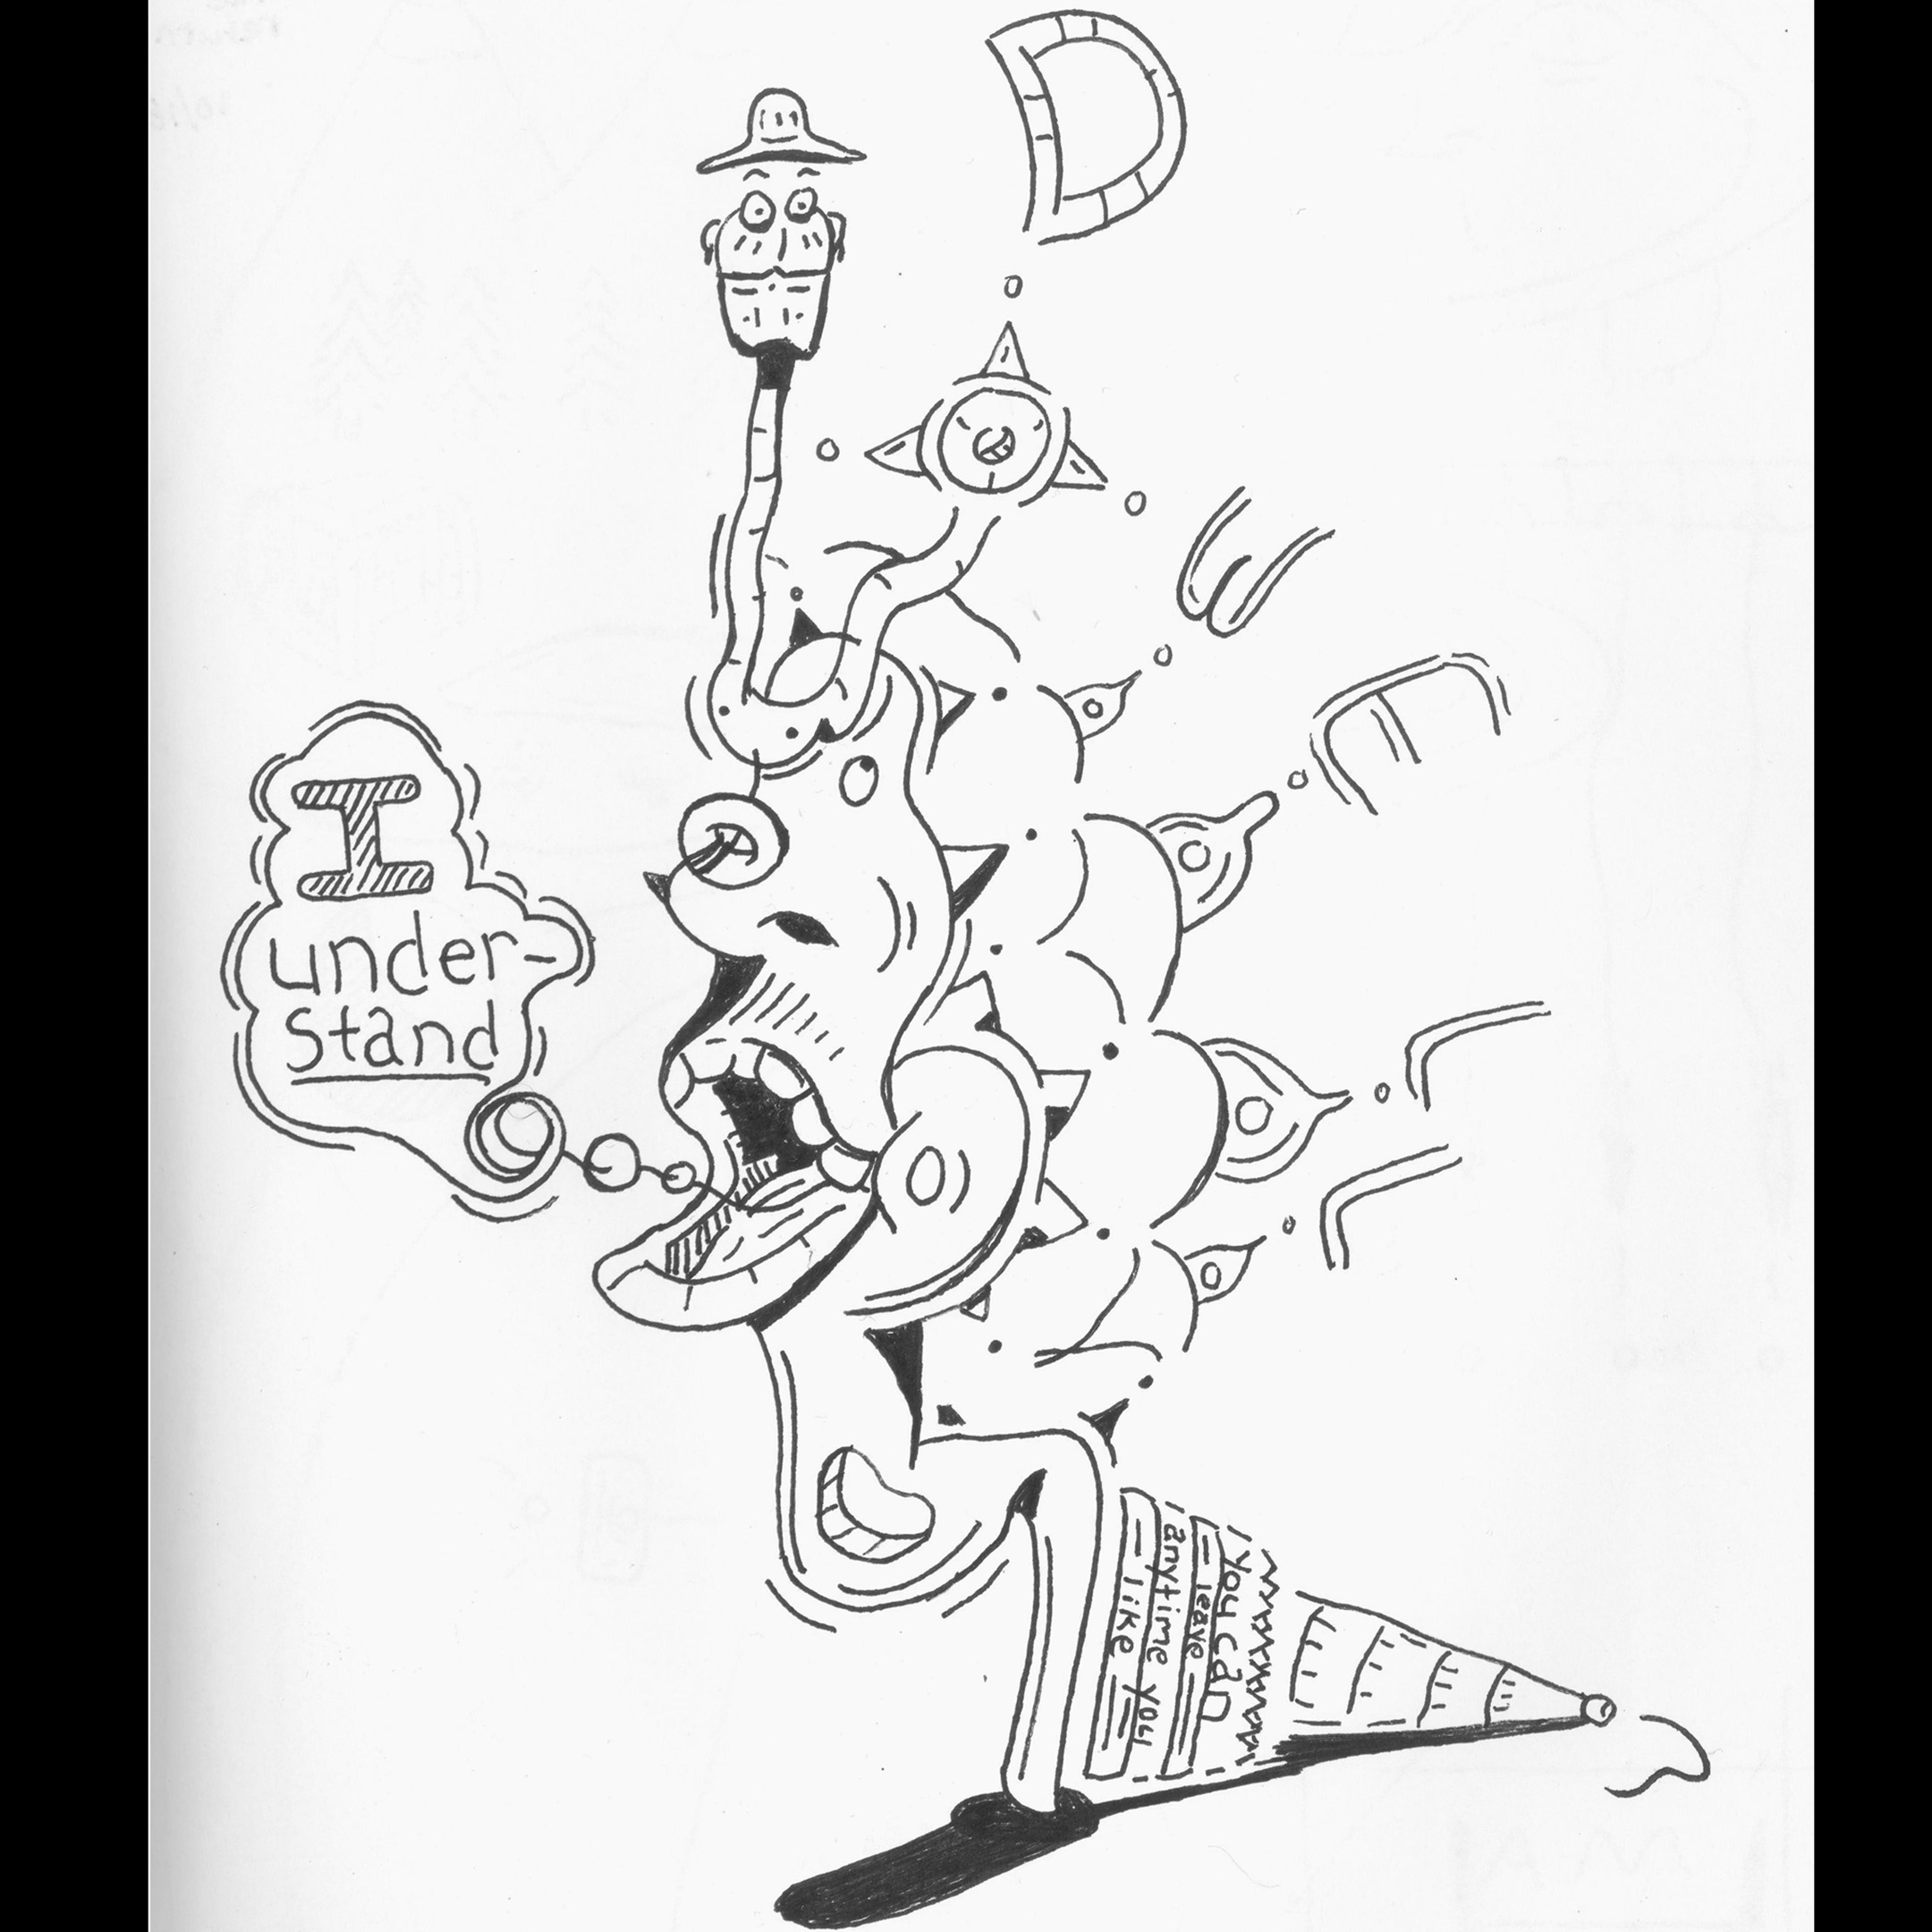 D
I
under-
stand
you can
leave
anytime you
like